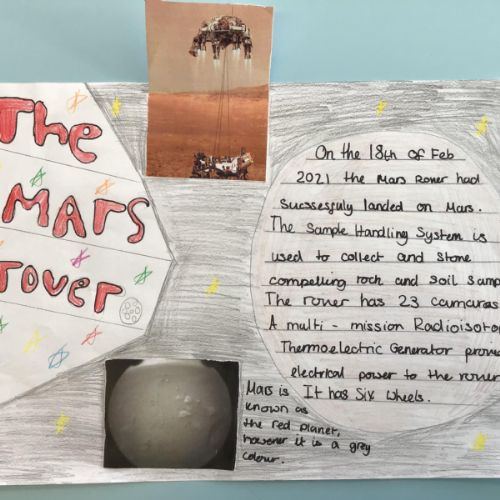 The
MARS
rover
On the 18th of Feb
2021 the Mars Rover had
successfuly landed on Mars.
The Sample Handling System is
used to collect and stone
compelling rock and soil samp
The rover has 23 camaras
A multi - mission Radioisotop
Thermoelectric Generator prove
electrical power to the rover
It has Six Wheels.
Mars is
known as
the red planet,
however it is a grey
colour.